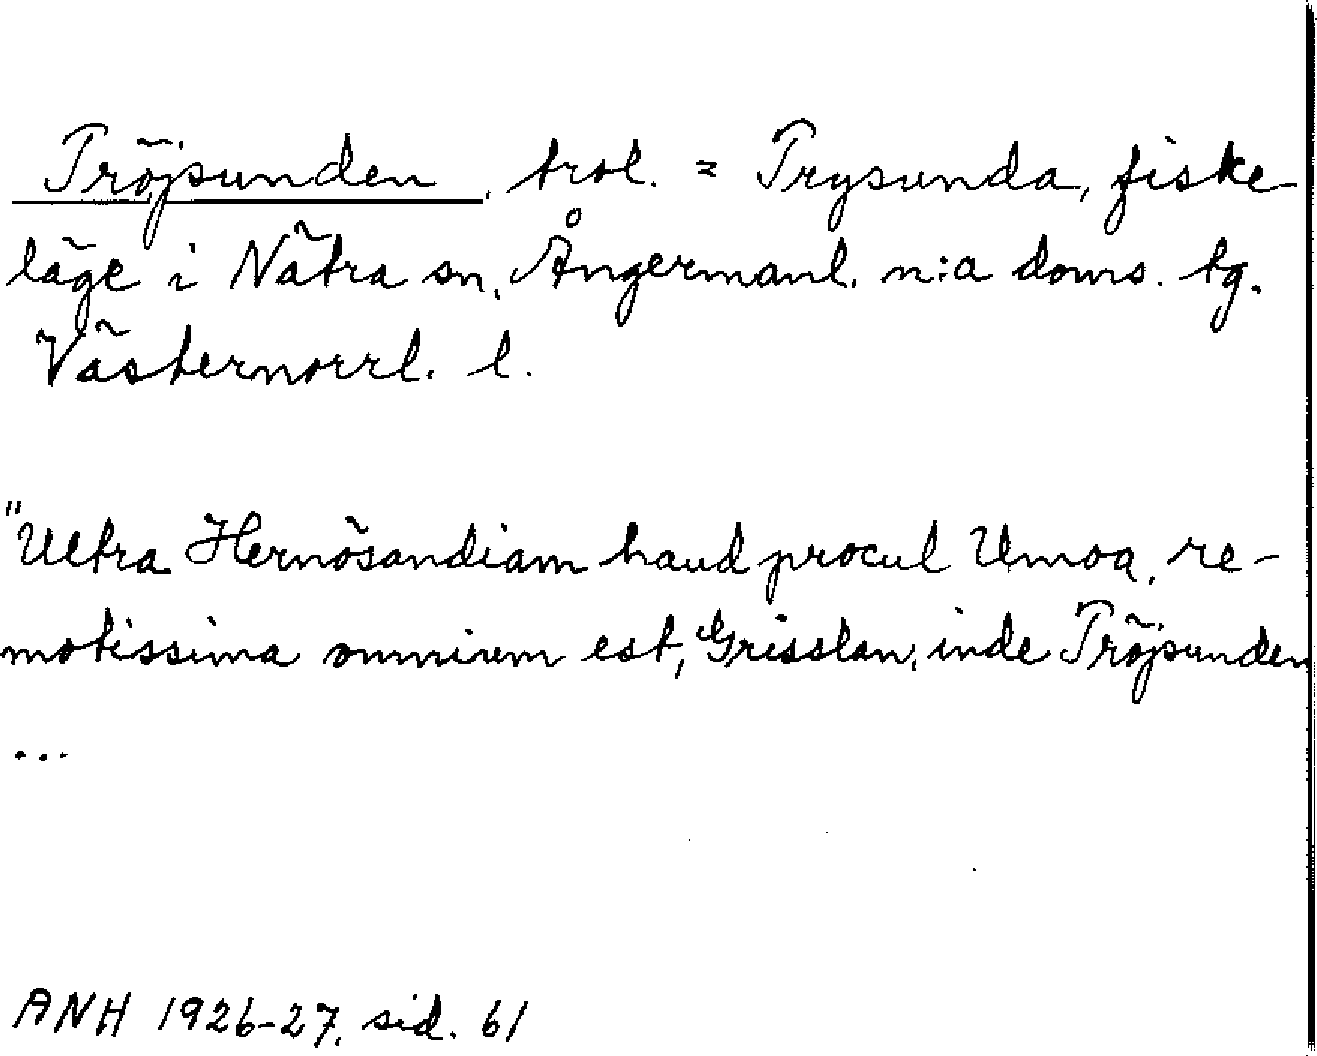 Tröjsunden, trol. = Trysunda, fiske-
läge i Nätra sn, Ångermanl. n:a doms. tg.
Västernorrl. l.
"Ultra Hernösandiam haud procul Umoa, re-
motissima omnium est, Grisslan, inde Tröjsunden
...
ANH 1926-27, sid. 61